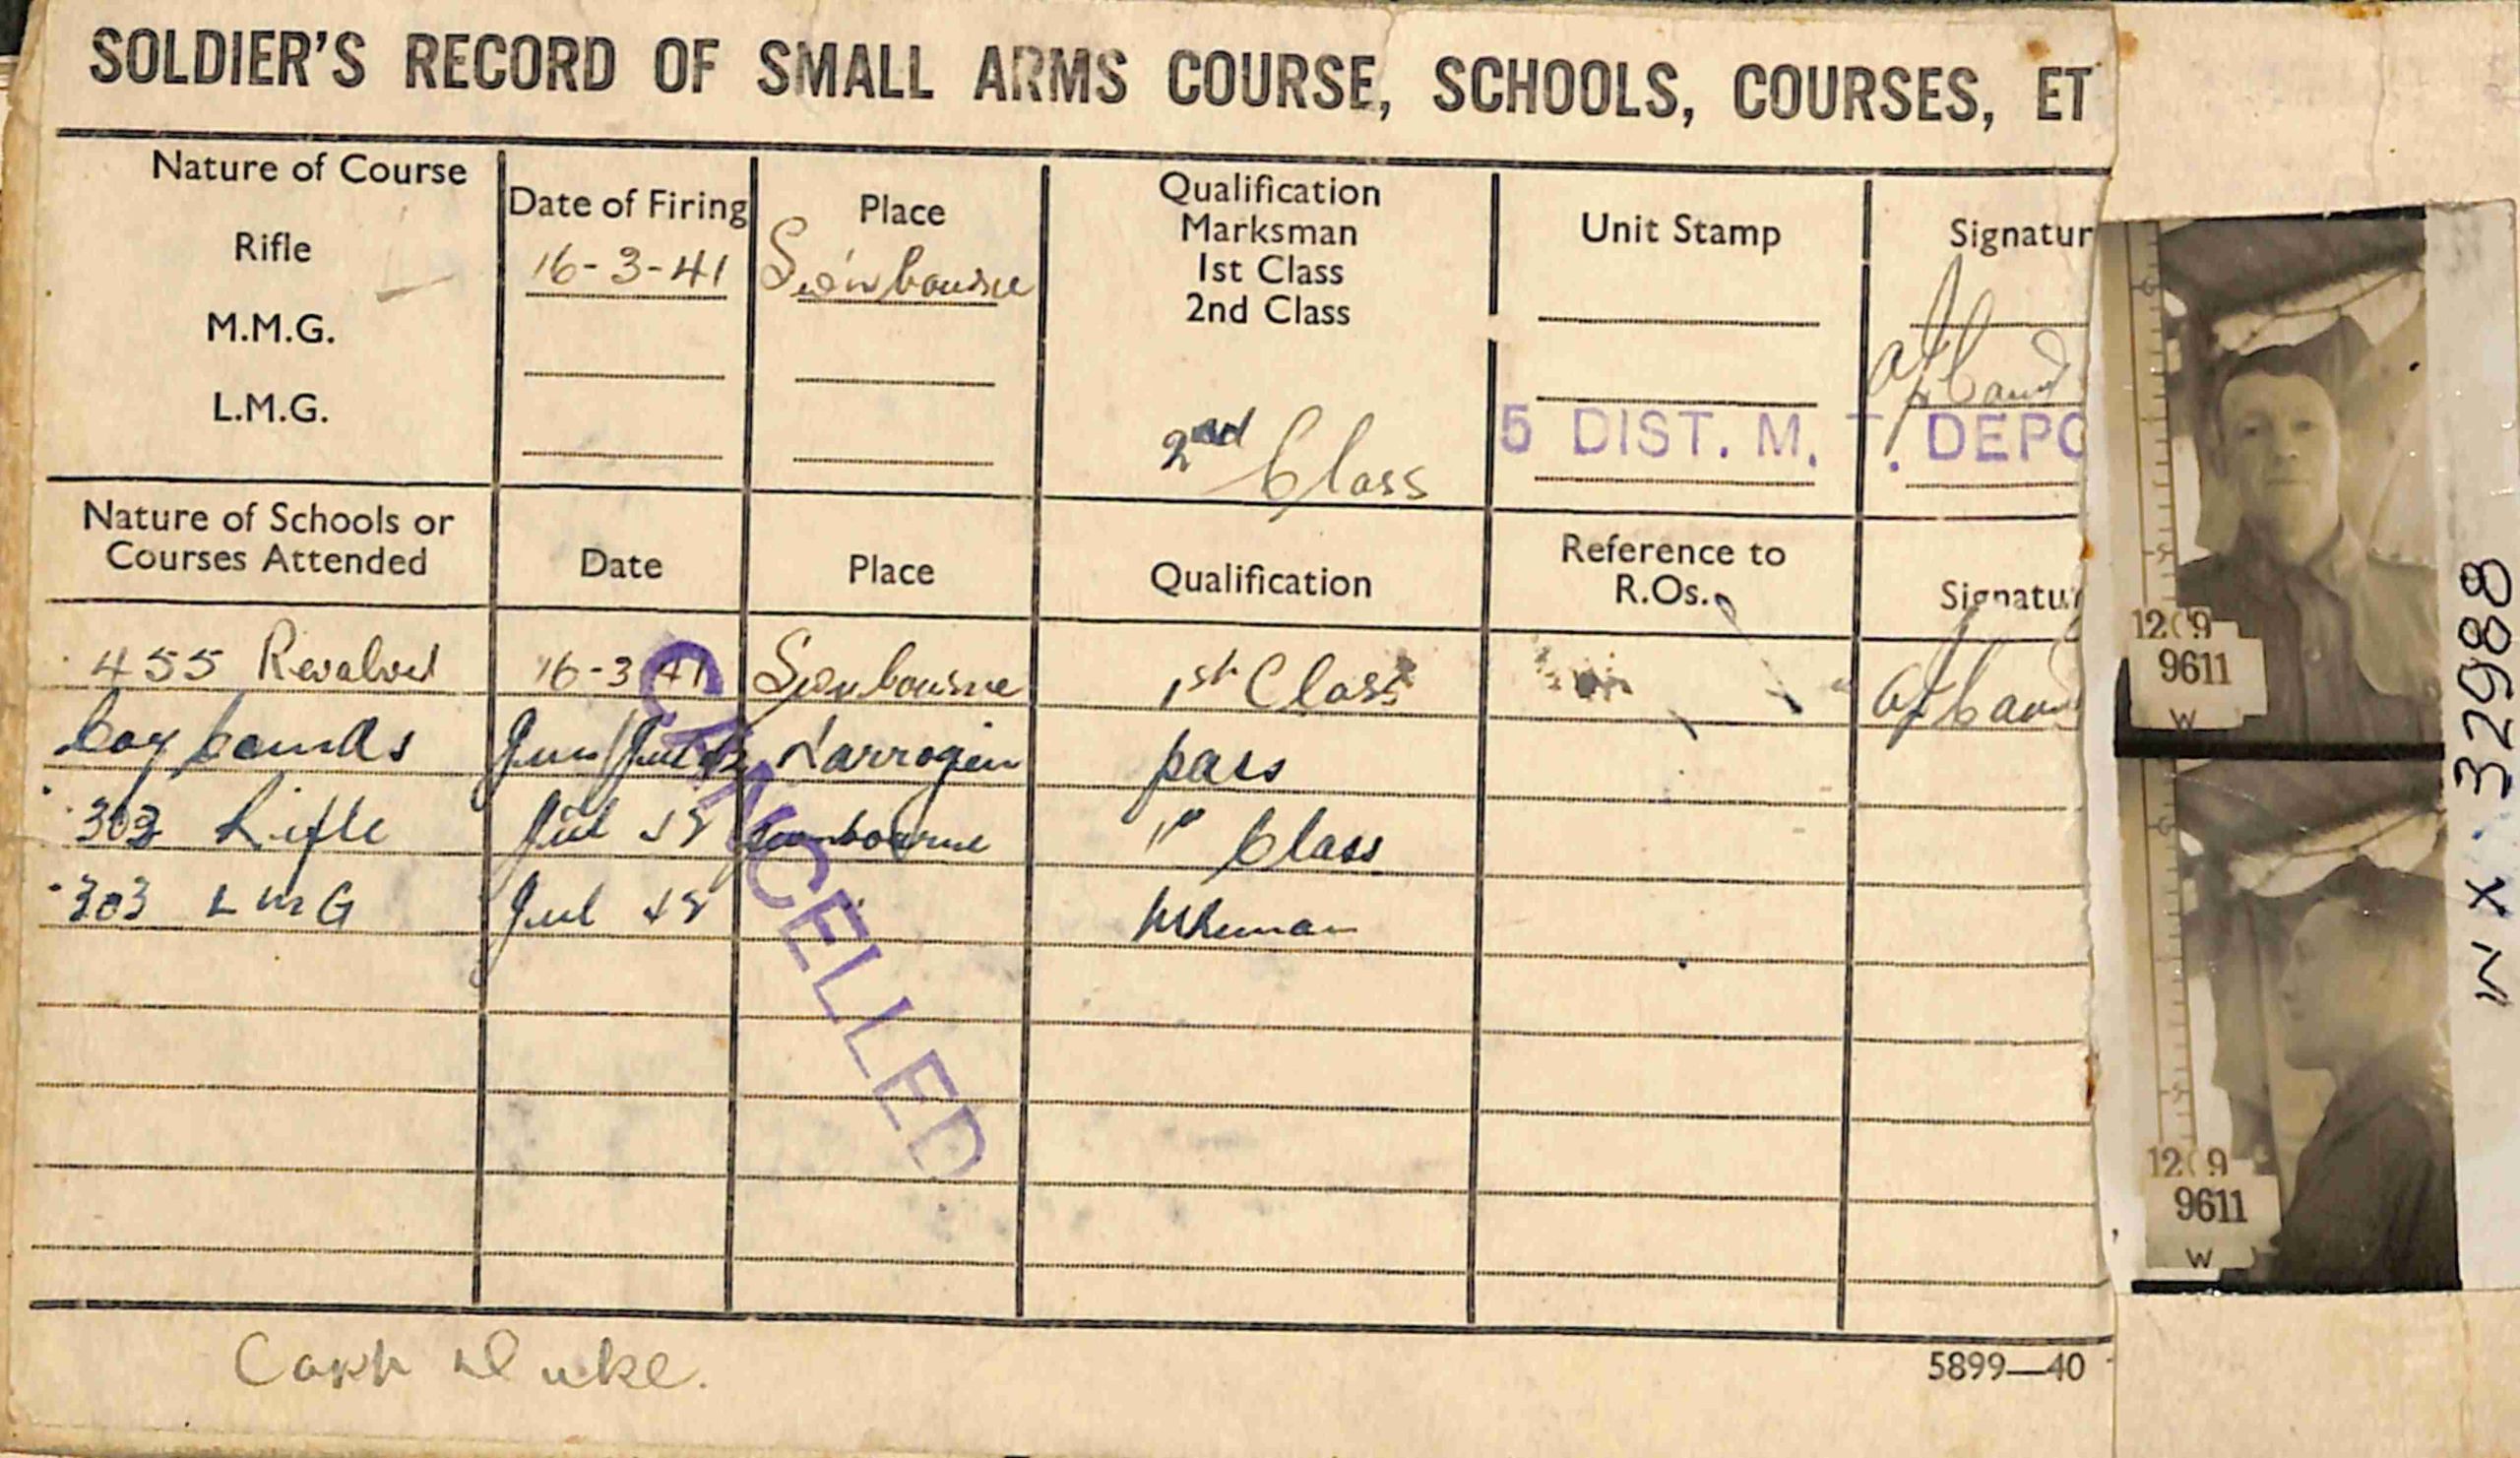 SOLDIER'S RECORD OF SMALL ARMS COURSE, SCHOOLS, COURSES, ET
Nature of Course Date of Firing Place Qualification Unit Stamp Signatur
Marksman
Rifle 16-3-41 1st Class
2nd Class
M.M.G.
L.M.G. 2nd Class 5 DIST. M. T. DEPO
Nature of Schools or
Courses Attended Date Place Qualification Reference to
R.Os. Signatur
455 Revolver 16-3-41 1st Class
Narrogin pass
303 Rifle Jul 1st Class
303 LMG Jul
CANCELLED
Duke.
5899—40
12 9
9611
W
12 9
9611
W
WX 32988